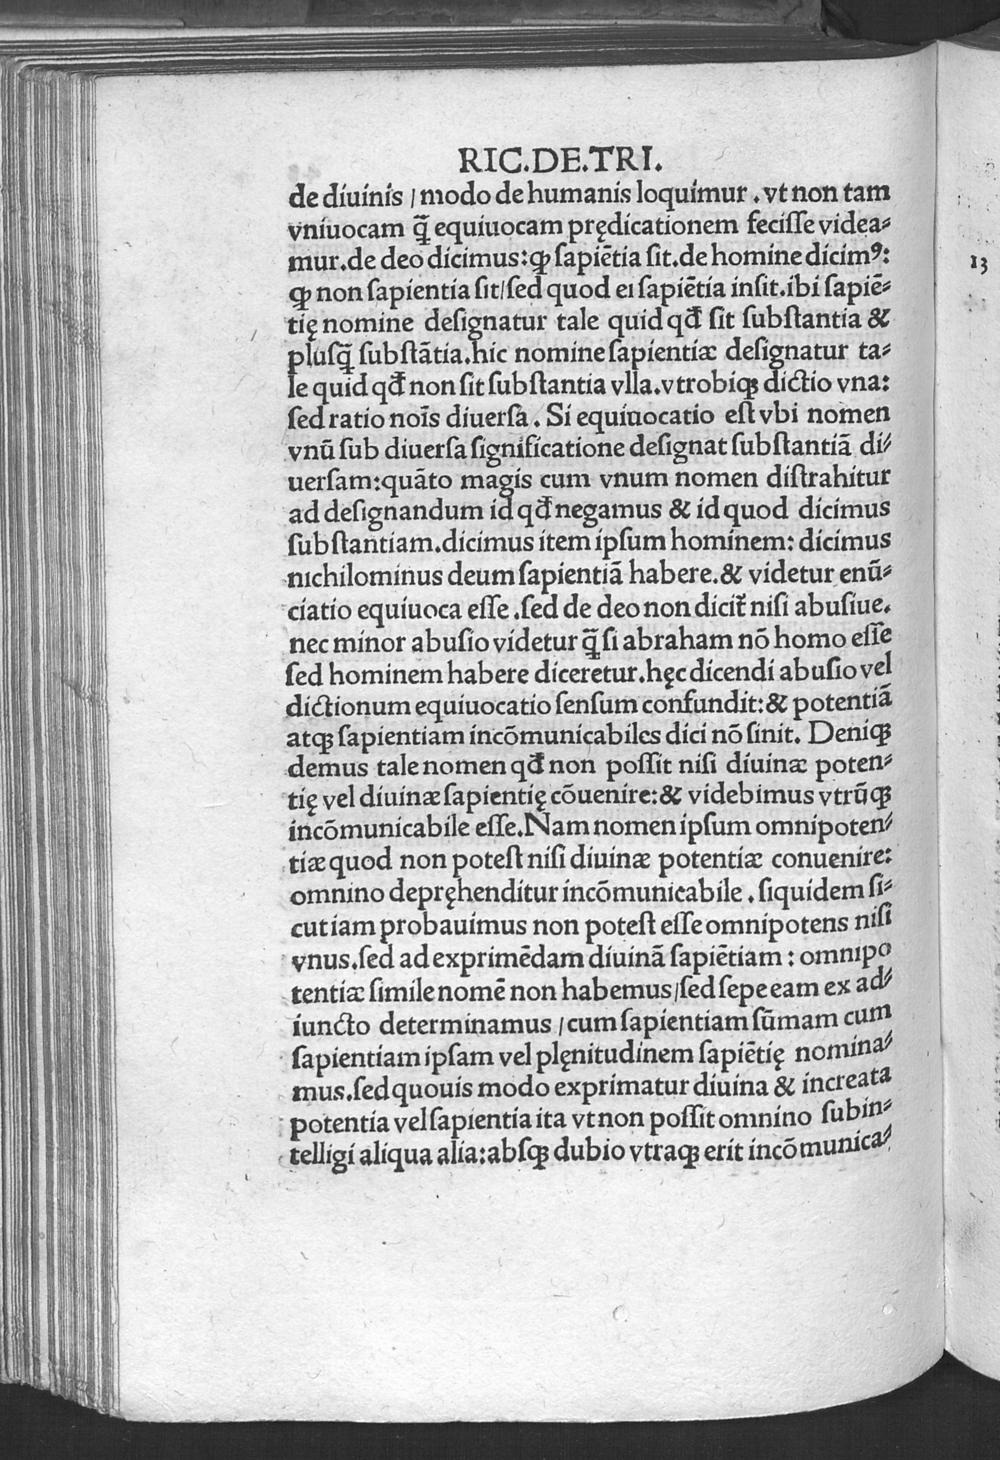 RIC.DE.TRI.
de diuinis / modo de humanis loquimur . vt non tam
vniuocam q̃ equiuocam prędicationem feciſſe videa⸗
mur.de deo dicimus:ꝙ ſapiētia ſit.de homine dicimꝰ:
ꝙ non ſapientia ſit/ſed quod ei ſapiētia inſit.ibi ſapiē⸗
tię nomine deſignatur tale quid qđ ſit ſubſtantia &
pluſq̃ ſubſtãtia.hic nomine ſapientiæ deſignatur ta⸗
le quid qđ non ſit ſubſtantia vlla.vtrobiqꝫ dictio vna:
ſed ratio noīs diuerſa . Si equiuocatio eſt vbi nomen
vnū ſub diuerſa ſignificatione deſignat ſubſtantiã di⸗
uerſam:quãto magis cum vnum nomen diſtrahitur
ad deſignandum id qđ negamus & id quod dicimus
ſubſtantiam.dicimus item ipſum hominem: dicimus
nichilominus deum ſapientiã habere.& videtur enū⸗
ciatio equiuoca eſſe .ſed de deo non dicit̃ niſi abuſiue.
nec minor abuſio videtur q̃ ſi abraham nō homo eſſe
ſed hominem habere diceretur.hęc dicendi abuſio vel
dictionum equiuocatio ſenſum confundit:& potentiã
atqꝫ ſapientiam incōmunicabiles dici nō ſinit. Deniqꝫ
demus tale nomen qđ non poſſit niſi diuinæ poten⸗
tię vel diuinæ ſapientię cōuenire:& videbimus vtrūqꝫ
incōmunicabile eſſe.Nam nomen ipſum omnipoten⸗
tiæ quod non poteſt niſi diuinæ potentiæ conuenire:
omnino depręhenditur incōmunicabile . ſiquidem ſi⸗
cut iam probauimus non poteſt eſſe omnipotens niſi
vnus.ſed ad exprimēdam diuinã ſapiētiam : omnipo
tentiæ ſimile nomē non habemus/ſed ſepe eam ex ad⸗
iuncto determinamus / cum ſapientiam ſūmam cum
ſapientiam ipſam vel plęnitudinem ſapiētię nomina⸗
mus.ſed quouis modo exprimatur diuina & increata
potentia vel ſapientia ita vt non poſſit omnino ſubin⸗
telligi aliqua alia:abſqꝫ dubio vtraqꝫ erit incōmunica⸗
13